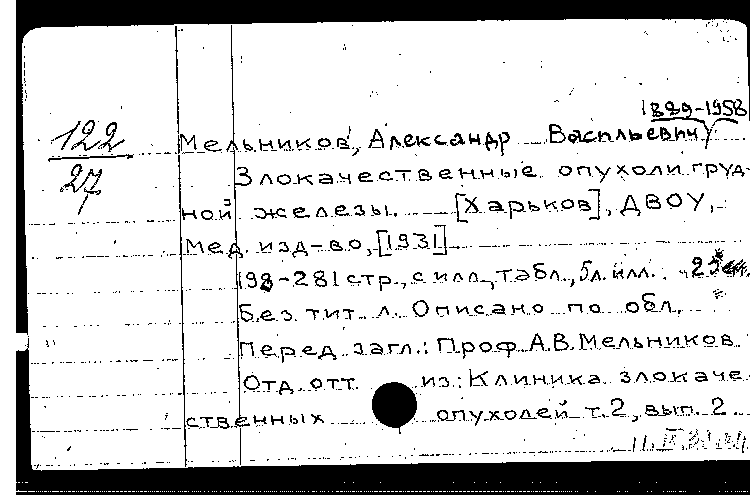 1889-1958
122 Мельников, Александр Васильевич
27 Злокачественные опухоли груд-
ной железы. [Харьков], ДВОУ,
мед. изд-во, [1931]
198-281 стр., с илл., табл., 5 л. илл.
Без тит. л. Описано по обл.
Перед загл.: Проф. А.В. Мельников
Отд. отт. из: Клиника злокаче-
ственных опухолей т. 2, вып. 2